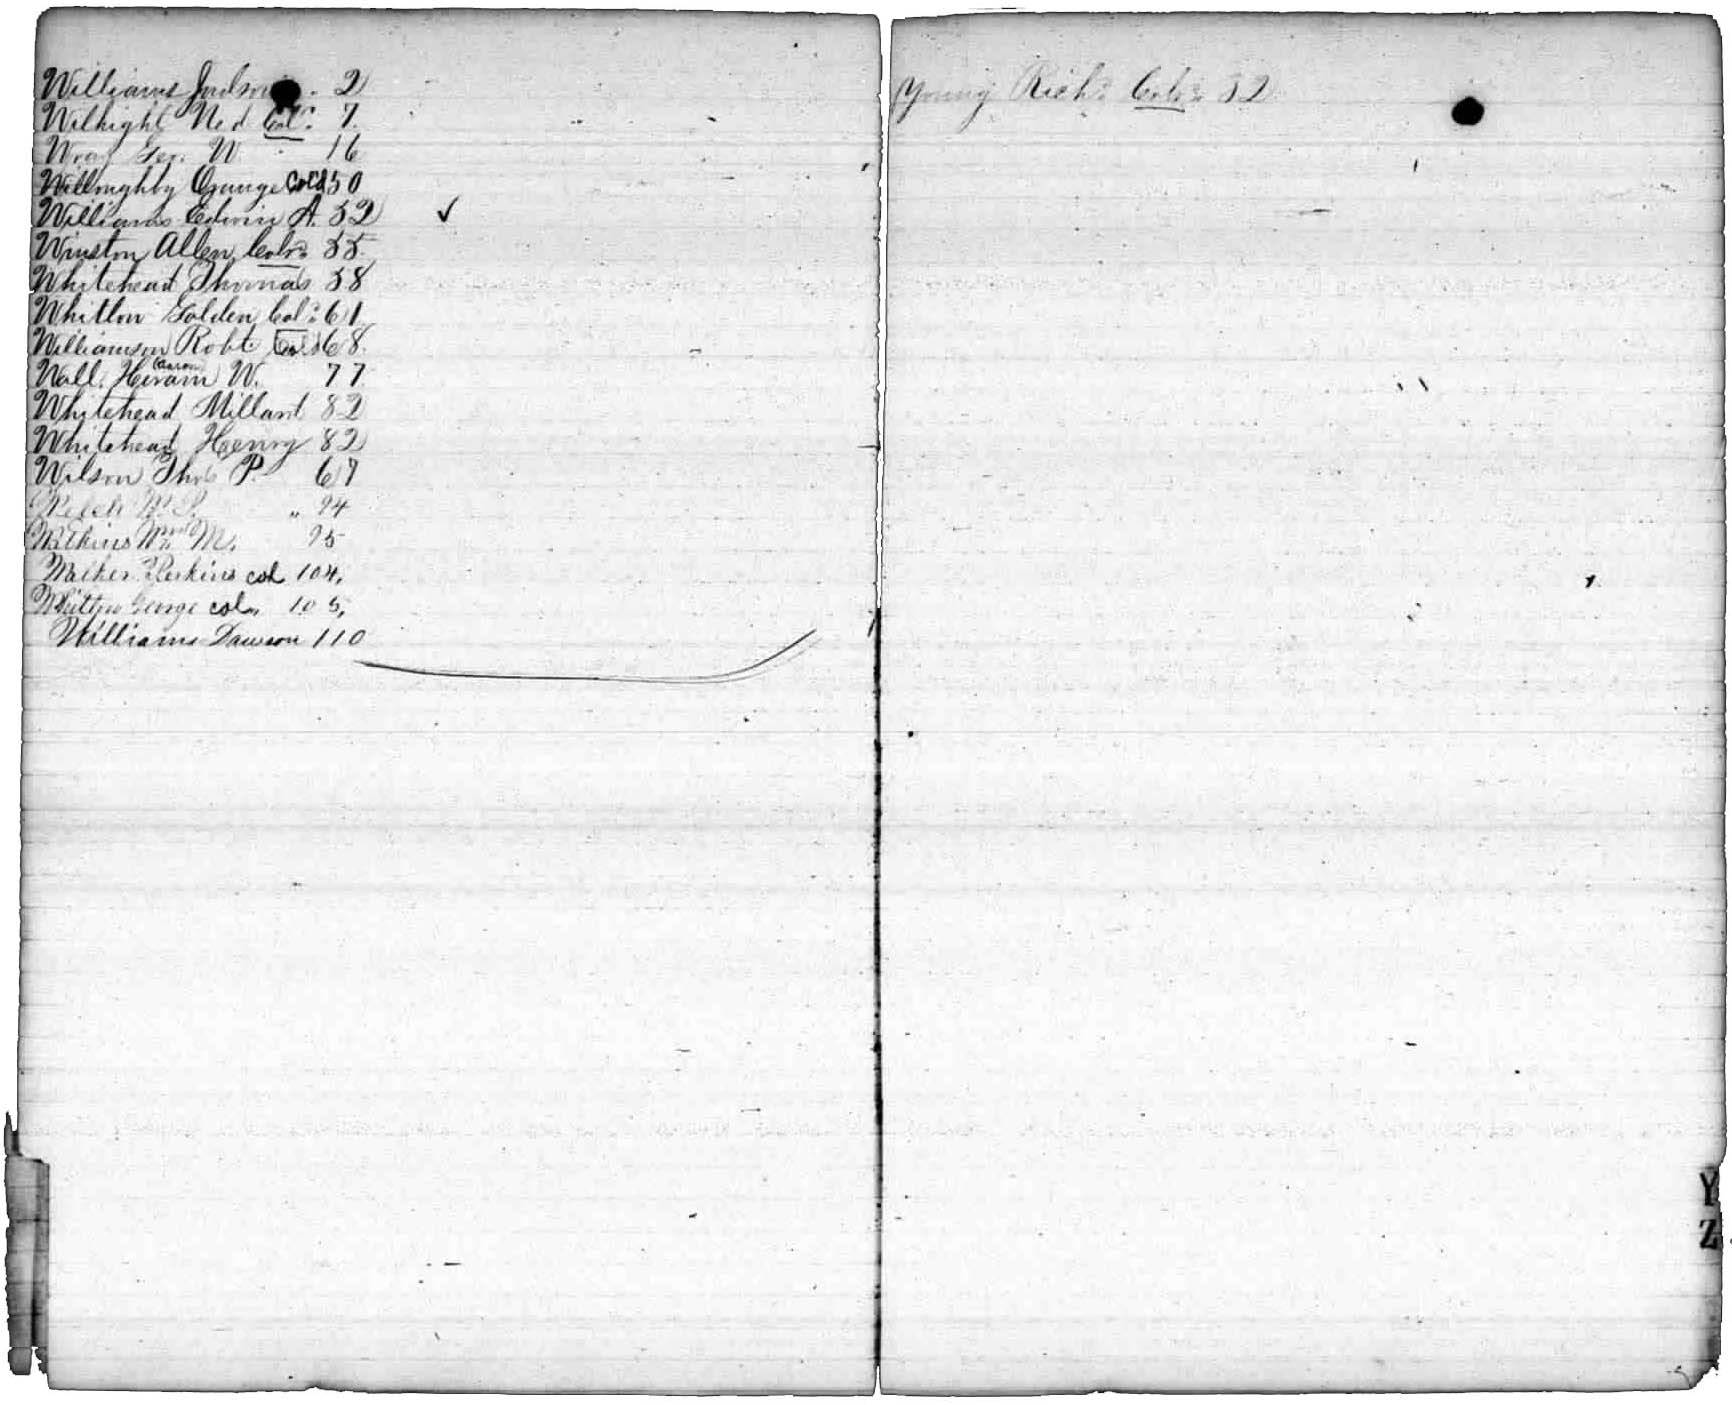 Williams Judson 2
Wilhight Ned Col. 7
Wray Geo. W. 16
Willoughby Orange Col'd 50
Williams Edwin A. 52 ✓
Winston Allen Cold 55
Whitehead Thomas 58
Whitlow Golden Col. 61
Williamson Robt Cold 68
Wall. Hiram W. 77
Whitehead Millard 82
Whitehead Henry 82
Wilson Thos P. 67
Welch „ 94
Watkins Wm M. 95
Walker Perkins col 104,
George col 105,
Williams Dawson 110
Young Richd Cold 32
Y
Z